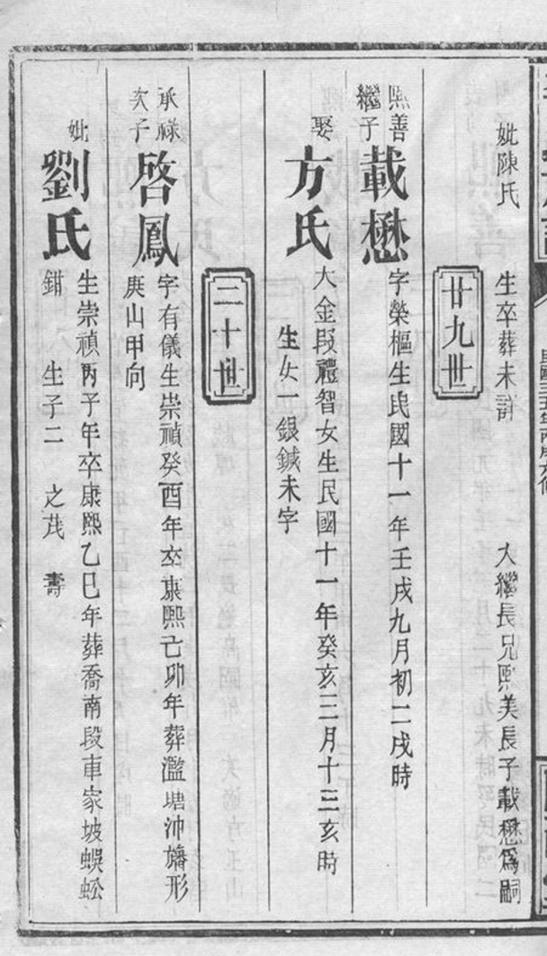 妣陳氏 生卒葬未詳 入繼長兄熙美長子載懋爲嗣
廿九世
熙善繼子 載懋 字榮樞生民國十一年壬戌九月初二戌時
娶 方氏 大金段禮智女生民國十一年癸亥三月十三亥時
生女一銀鍼未字
二十世
承祿次子 啓鳳 字有儀生崇禎癸酉年卒康熙己卯年葬濫塘沖旛形
庚山甲向
妣 劉氏 生崇禎丙子年卒康熙乙巳年葬喬南段車家坡蜈蚣
鉗 生子二 之茂 壽